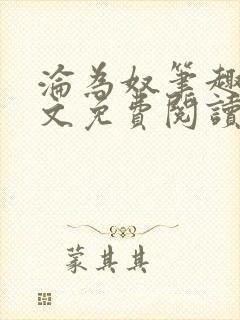 淪為奴筆趣
文免費閱讀
蒙其其